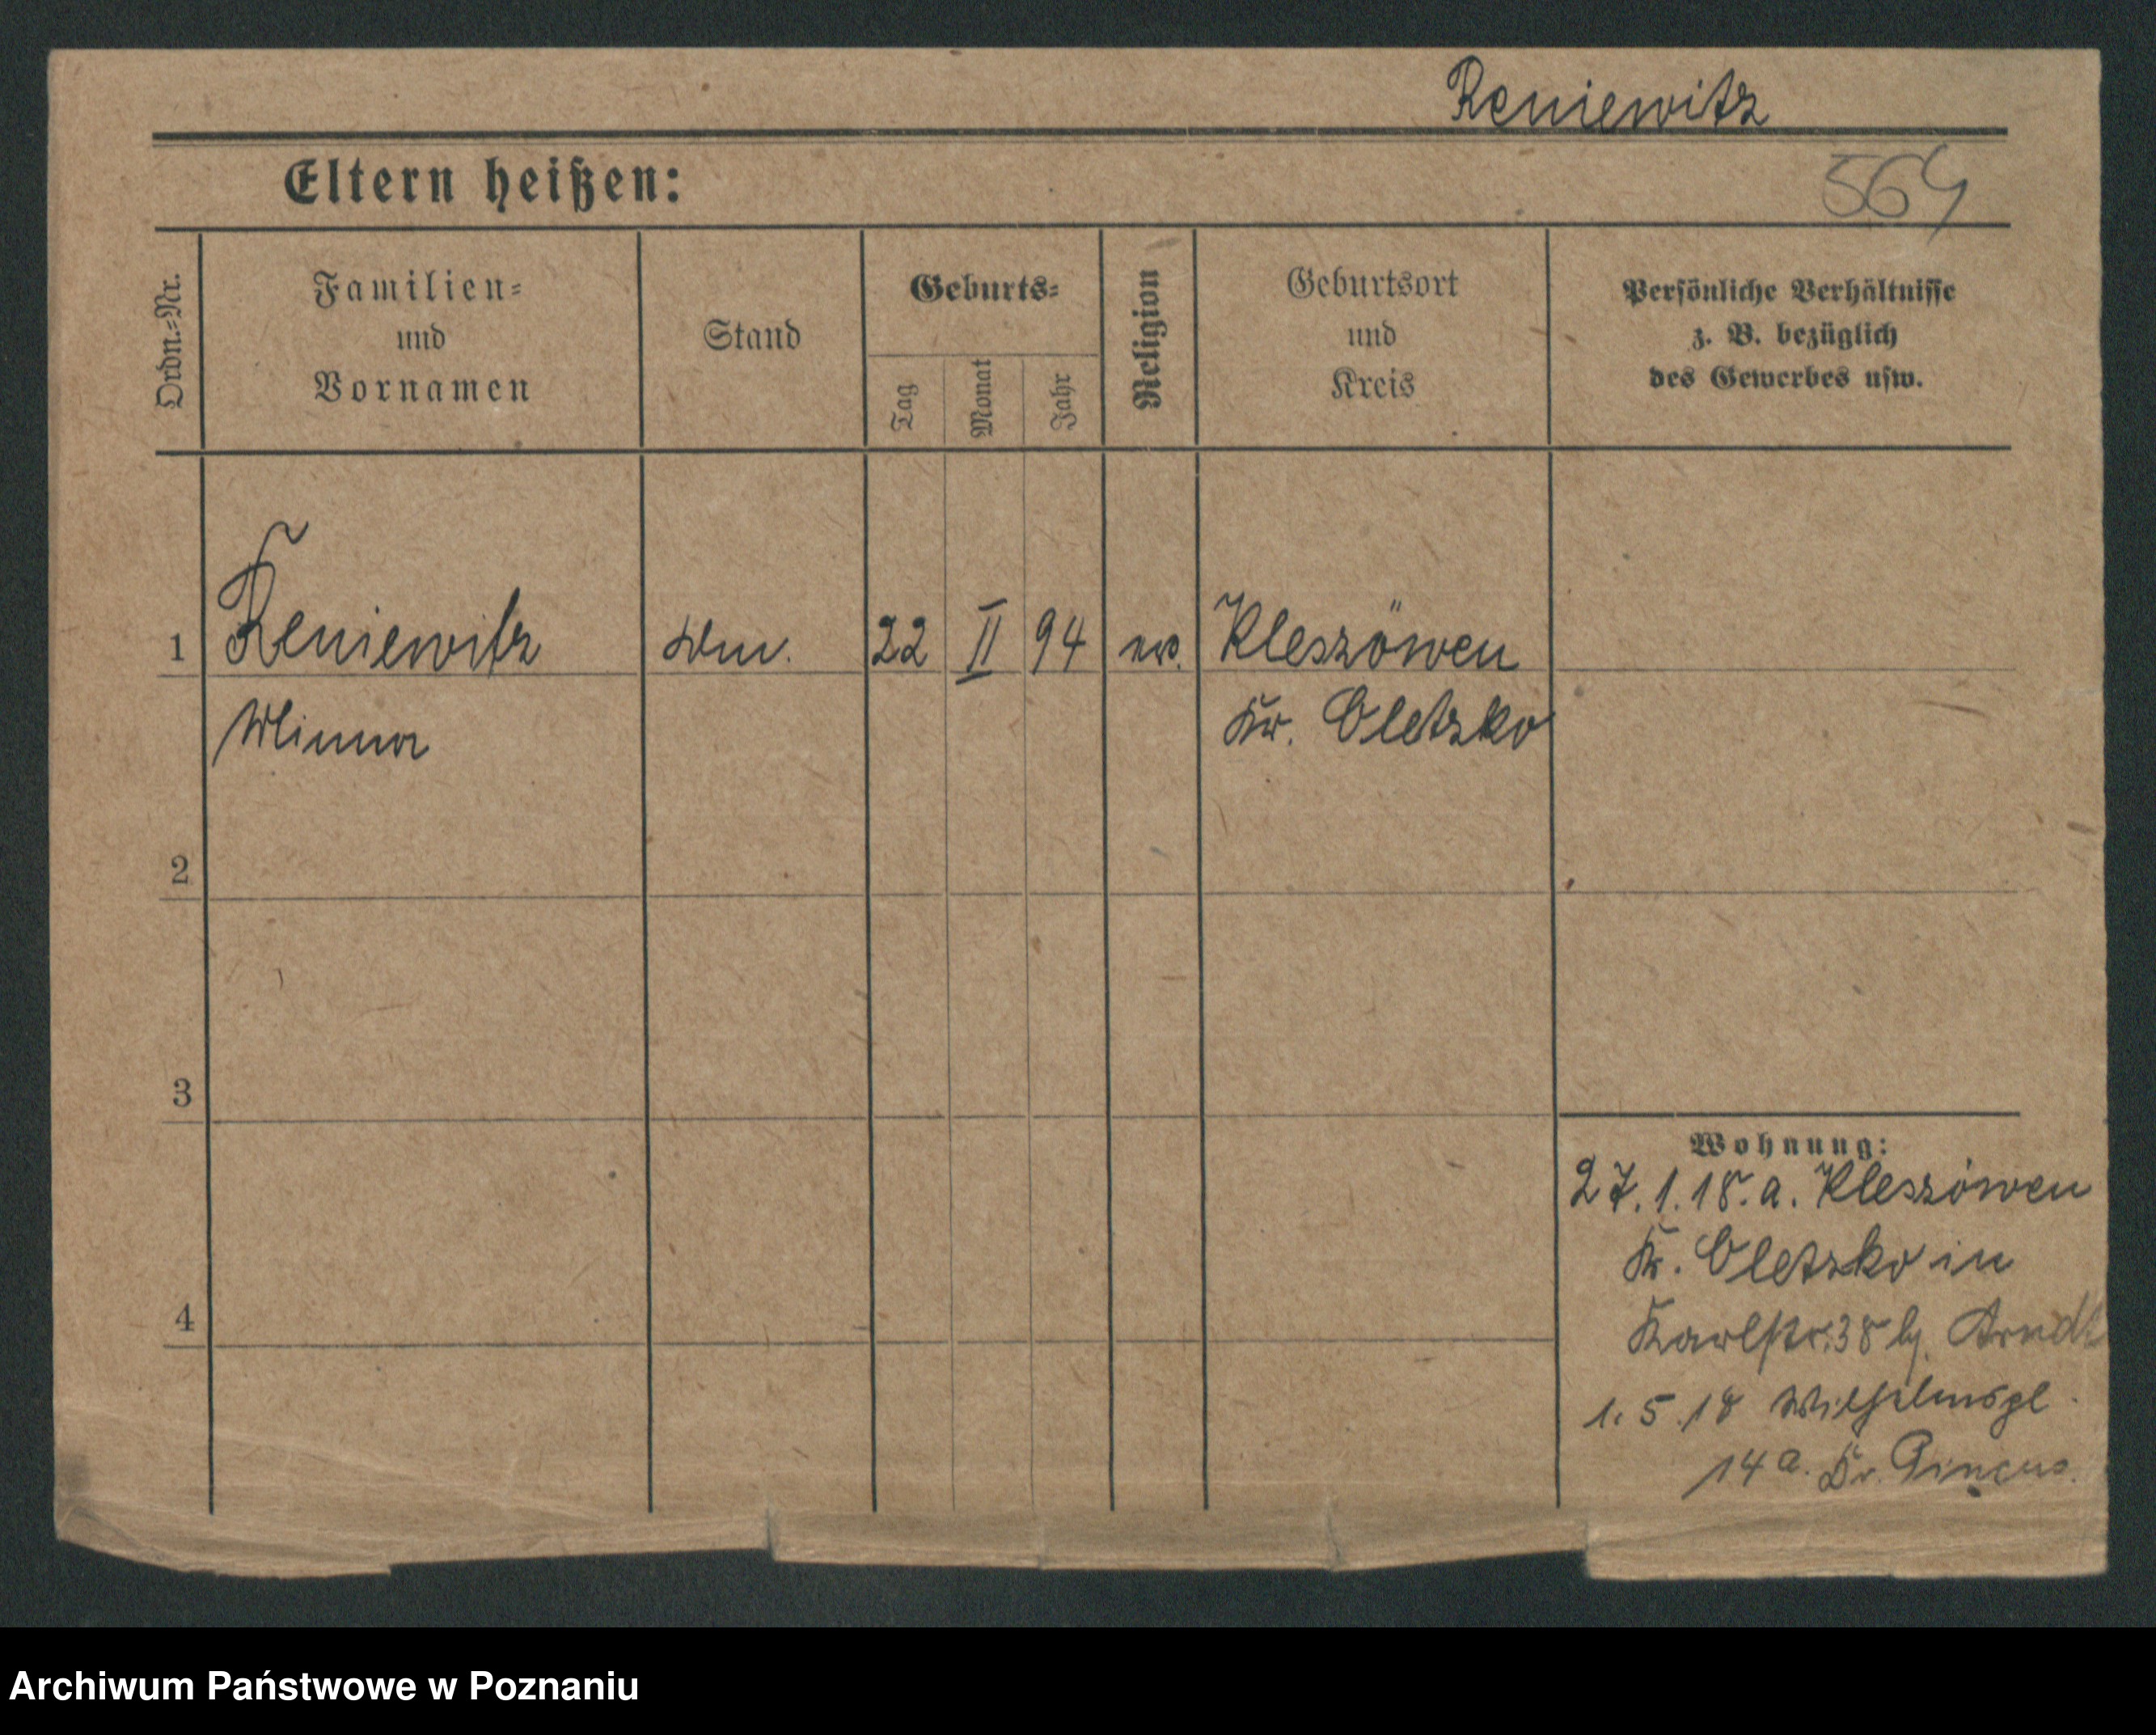 Reniewitz
Eltern heißen:
564
Ordn.=Nr.
Familien=
und
Vornamen
Stand
Geburts=
Tag
Monat
Jahr
Religion
Geburtsort
und
Kreis
Persönliche Verhältnisse
z. B. bezüglich
des Gewerbes usw.
1 Reniewitz 22 II 94 Kleszöwen
Minna Kr. Oletzko
2
3
4
Wohnung:
27.1.18. a. Kleszöwen
Kr. Oletzko in
Karlstr. 38 b. Arndt
1.5.18 Wilhelmspl.
14a. Dr. Pincus.
Archiwum Państwowe w Poznaniu